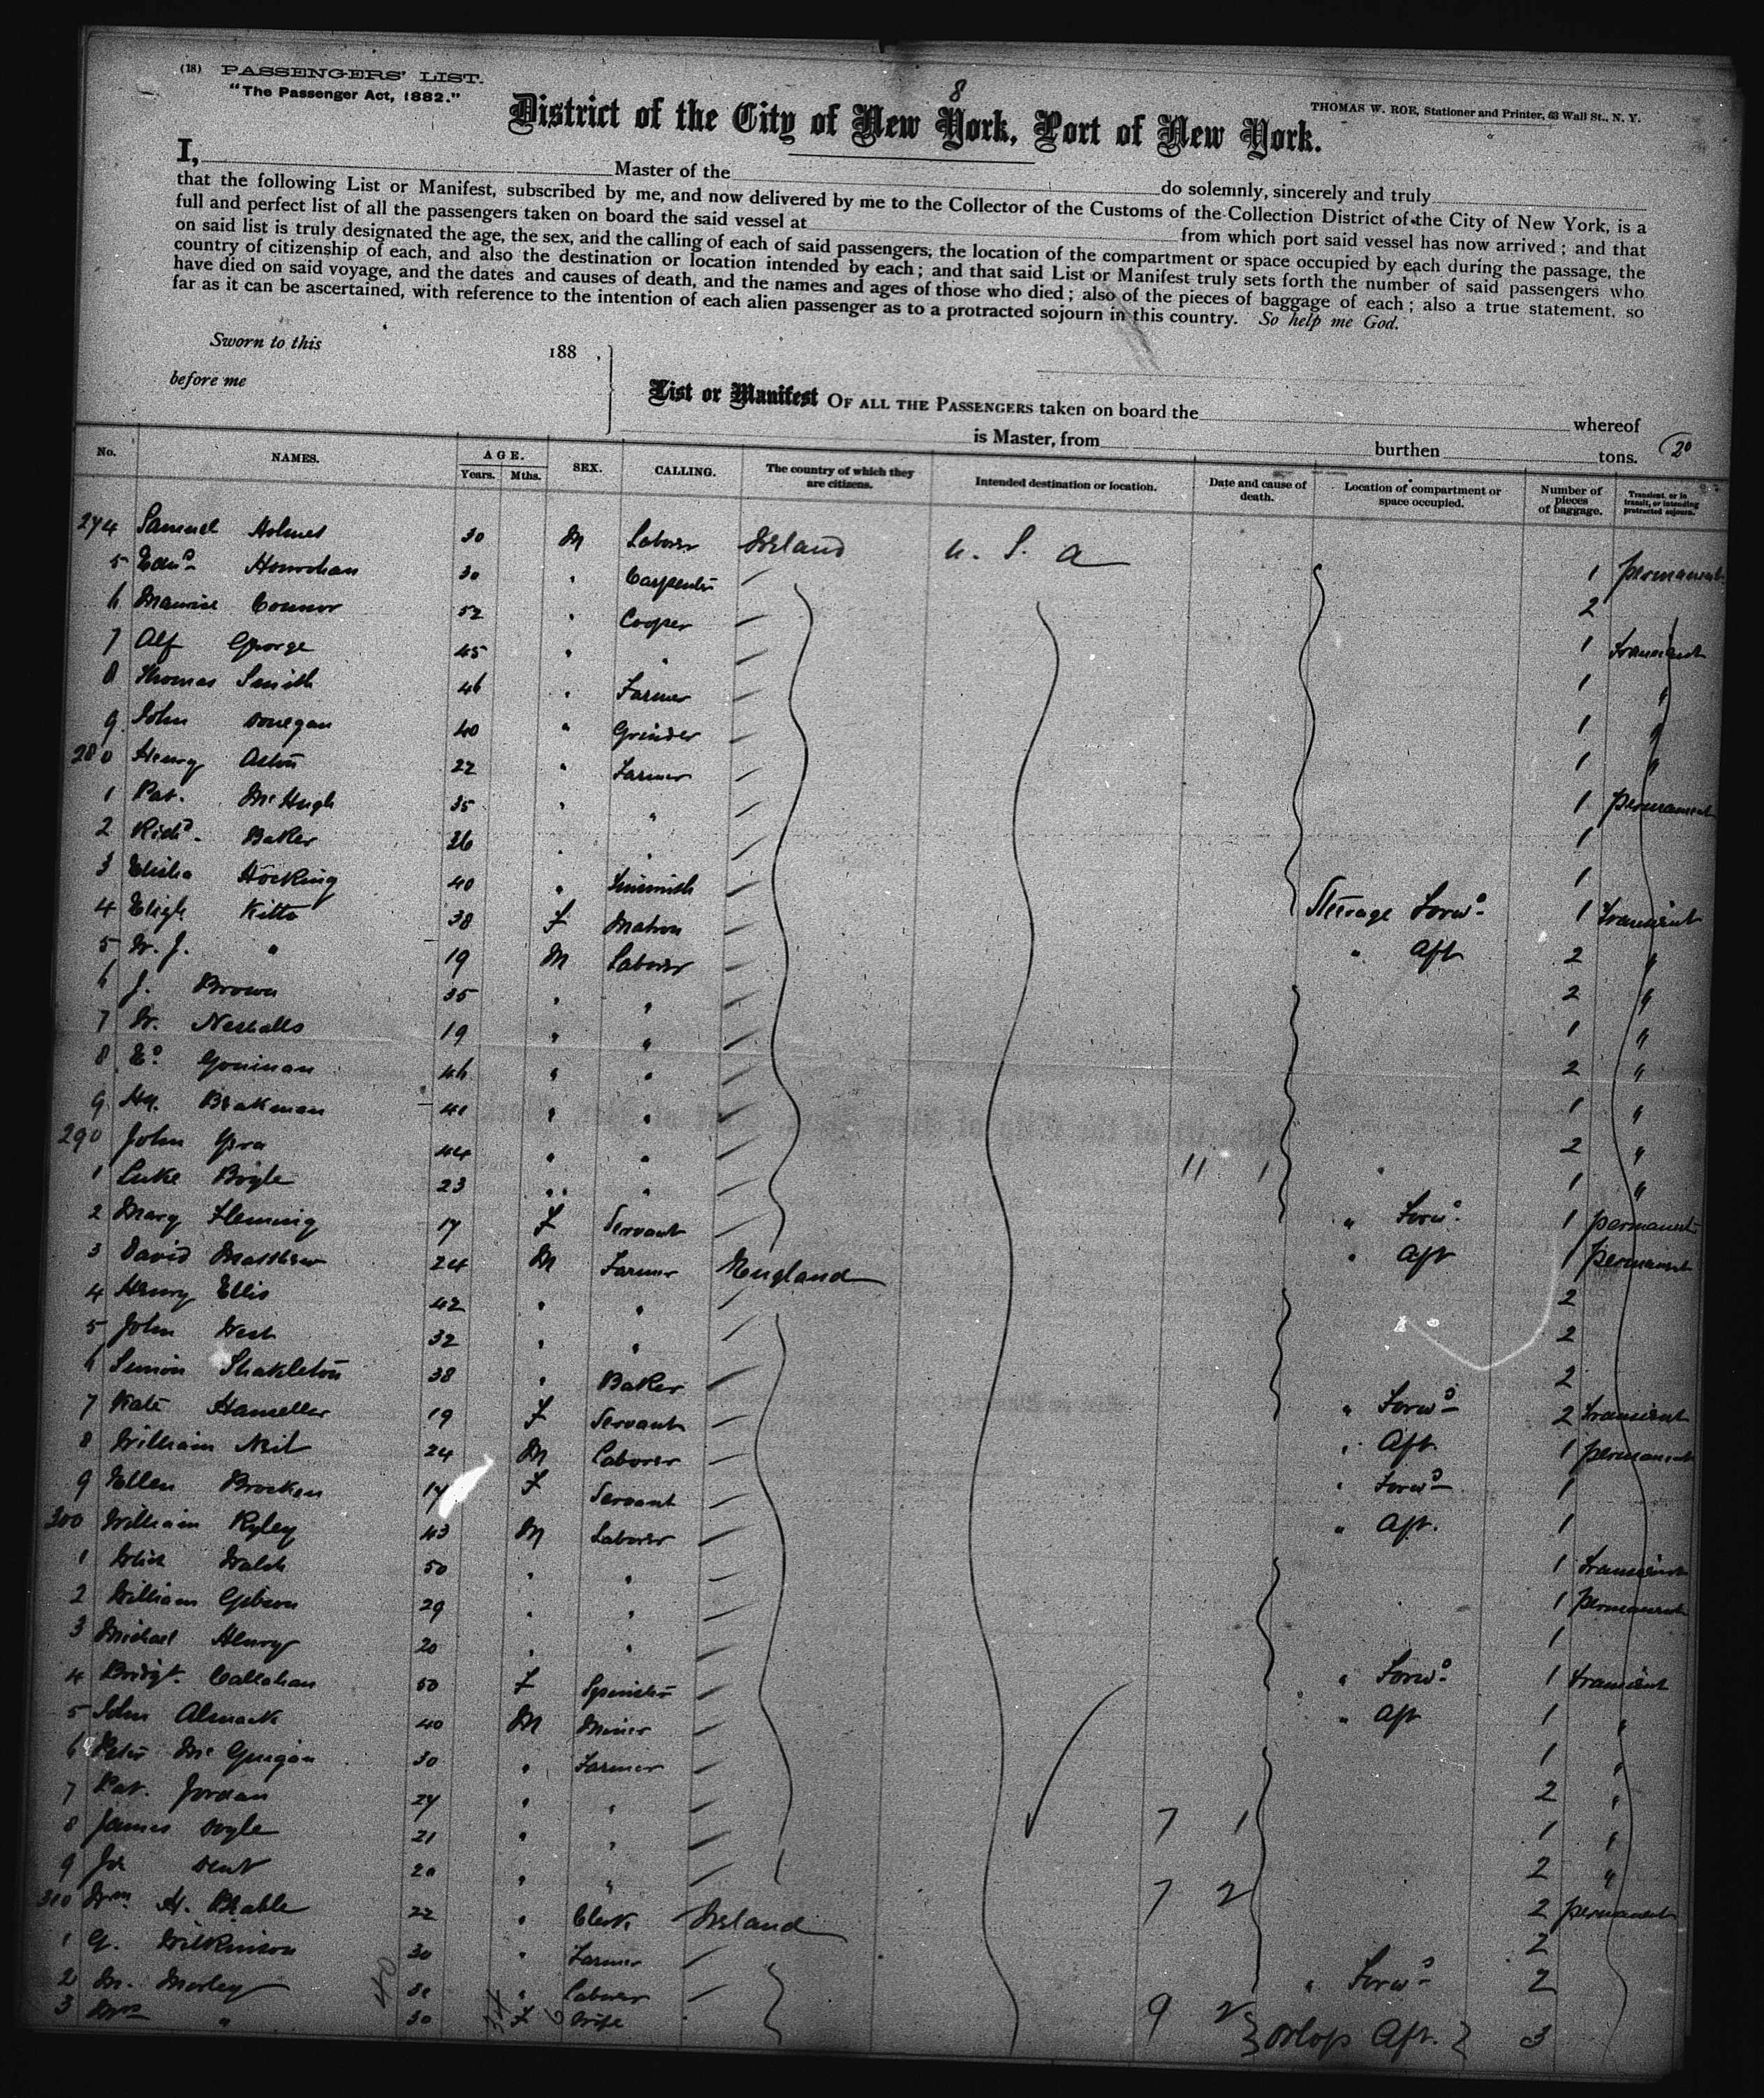 (18) PASSENGERS' LIST.
"The Passenger Act, 1882."
8
THOMAS W. ROE, Stationer and Printer, 63 Wall St., N. Y.
District of the City of New York, Port of New York.
I, Master of the do solemnly, sincerely and truly
that the following List or Manifest, subscribed by me, and now delivered by me to the Collector of the Customs of the Collection District of the City of New York, is a
full and perfect list of all the passengers taken on board the said vessel at from which port said vessel has now arrived; and that
on said list is truly designated the age, the sex, and the calling of each of said passengers, the location of the compartment or space occupied by each during the passage, the
country of citizenship of each, and also the destination or location intended by each; and that said List or Manifest truly sets forth the number of said passengers who
have died on said voyage, and the dates and causes of death, and the names and ages of those who died; also of the pieces of baggage of each; also a true statement, so
far as it can be ascertained, with reference to the intention of each alien passenger as to a protracted sojourn in this country. So help me God.
Sworn to this 188 ,
before me
List or Manifest OF ALL THE PASSENGERS taken on board the whereof
is Master, from burthen tons. 20
No. NAMES. AGE. Years. Mths. SEX. CALLING. The country of which they are citizens. Intended destination or location. Date and cause of death. Location of compartment or space occupied. Number of pieces of baggage. Transient, or in transit, or intending protracted sojourn.
274 Samuel Holmes 30 M Laborer Ireland U. S. A 1 permanent
5 Edwd Hourohan 30 " Carpenter 2
6 Maurice Connor 52 " Cooper 1 transient
7 Alf George 45 " " 1 "
8 Thomas Smith 46 " Farmer 1 "
9 John Donegan 40 " Grinder 1 "
280 Henry Aston 22 " Farmer 1 permanent
1 Pat. McHugh 35 " " 1
2 Richd. Baker 36 " " 1
3 Elisha Hocking 40 " Tinsmith Steerage Forwd 1 transient
4 Eligh Kitto 38 F Matron " Aft 2 "
5 W. J. " 19 M Laborer 2 "
6 J. Brown 35 " " 1 "
7 W. 19 " " 2 "
8 Ed. Goninan 46 " " 1 "
9 Hy. Brakman 41 " " 2 "
290 John 44 " " 11 1 1 "
1 Luke Bogle 23 " " " Forwd 1 permanent
2 Mary Fleming 17 F Servant " Aft 1 permanent
3 David Matthew 24 M Farmer England 2
4 Henry Ellis 42 " " 2
5 John West 32 " " 2
6 Simon Shakleton 38 " Baker " Forwd 2 transient
7 Kate 19 F Servant " Aft 1 permanent
8 William Neil 24 M Laborer " Forwd 1
9 Ellen Brocken 17 F Servant " Aft. 1
300 William Ryley 43 M Laborer 1 transient
1 Walsh 50 " " 1 permanent
2 William Gibson 29 " " 1
3 Michael Henry 20 " " " Forwd 1 transient
4 Bridgt. Callahan 50 F Spinster " Aft 1 "
5 John Almack 40 M Miner 1 "
6 Peter McGuigan 30 " Farmer 2 "
7 Pat. Jordan 27 " " 7 1 1 "
8 James Doyle 21 " " 2 "
9 Jos Dent 20 " " 7 2 2 permanent
310 Wm. H. Brable 22 " Clerk Ireland 2
1 G. Wilkinson 30 " Farmer " Forwd 2
2 M. Morley " Laborer 9 2 Orlop Aft. 3
3 Mrs " 30 F Wife